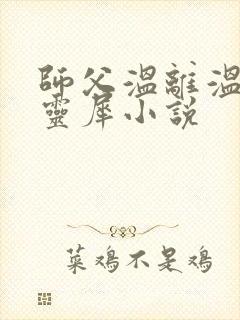 師父溫離溫
靈犀小說
菜鸡不是鸡